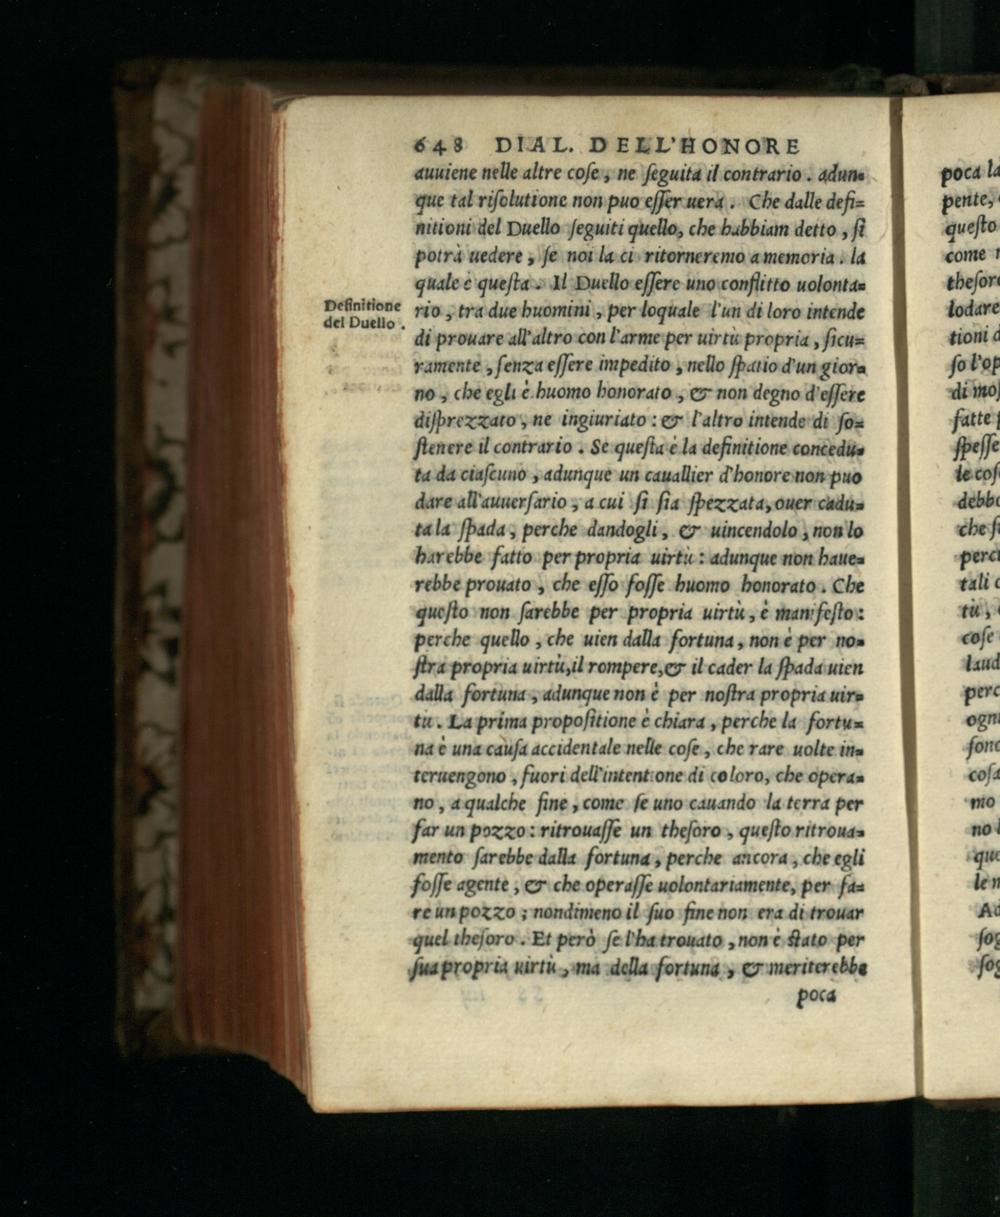 648 DIAL. DELL'HONORE
auuiene nelle altre coſe, ne ſeguita il contrario. adun=
que tal riſolutione non puo eſſer uera. Che dalle defi=
nitioni del Duello ſeguiti quello, che habbiam detto, ſi
potrà uedere, ſe noi la ci ritorneremo a memoria. la
quale è queſta. Il Duello eſſere uno conflitto uolonta=
Definitione
del Duello.
rio, tra due huomini, per loquale l'un di loro intende
di prouare all'altro con l'arme per uirtù propria, ſicu=
ramente, ſenza eſſere impedito, nello ſpatio d'un gior=
no, che egli è huomo honorato, & non degno d'eſſere
diſprezzato, ne ingiuriato: & l'altro intende di ſo=
ſtenere il contrario. Se queſta è la definitione concedu=
ta da ciaſcuno, adunque un cauallier d'honore non puo
dare all'auuerſario, a cui ſi ſia ſpezzata, ouer cadu=
ta la ſpada, perche dandogli, & uincendolo, non lo
harebbe fatto per propria uirtù: adunque non haue=
rebbe prouato, che eſſo foſſe huomo honorato. Che
queſto non ſarebbe per propria uirtù, è manifeſto:
perche quello, che uien dalla fortuna, non è per no=
ſtra propria uirtù, il rompere, & il cader la ſpada uien
dalla fortuna, adunque non è per noſtra propria uir=
tù. La prima propoſitione è chiara, perche la fortu=
na è una cauſa accidentale nelle coſe, che rare uolte in=
teruengono, fuori dell'intentione di coloro, che opera=
no, a qualche fine, come ſe uno cauando la terra per
far un pozzo: ritrouaſſe un theſoro, queſto ritroua=
mento ſarebbe dalla fortuna, perche ancora, che egli
foſſe agente, & che operaſſe uolontariamente, per fa=
re un pozzo; nondimeno il ſuo fine non era di trouar
quel theſoro. Et però ſe l'ha trouato, non è ſtato per
ſua propria uirtù, ma della fortuna, & meriterebbe
poca
poca la
pente,
queſto
come
theſoro
lodare
tioni
ſo l'op
di moſ
fatte
ſpeſſe
le coſ
debbo
che ſi
perc
tali
tù,
coſe
laud
perc
ogni
ſono
coſa
mo
no
que
le
Ad
ſog
ſog